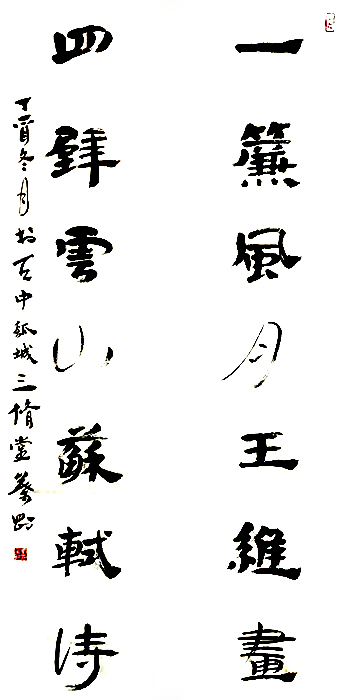 一簾風月王維畫
四壁雲山蘇軾诗
丁酉冬月於百中瓠城三脩堂蔡